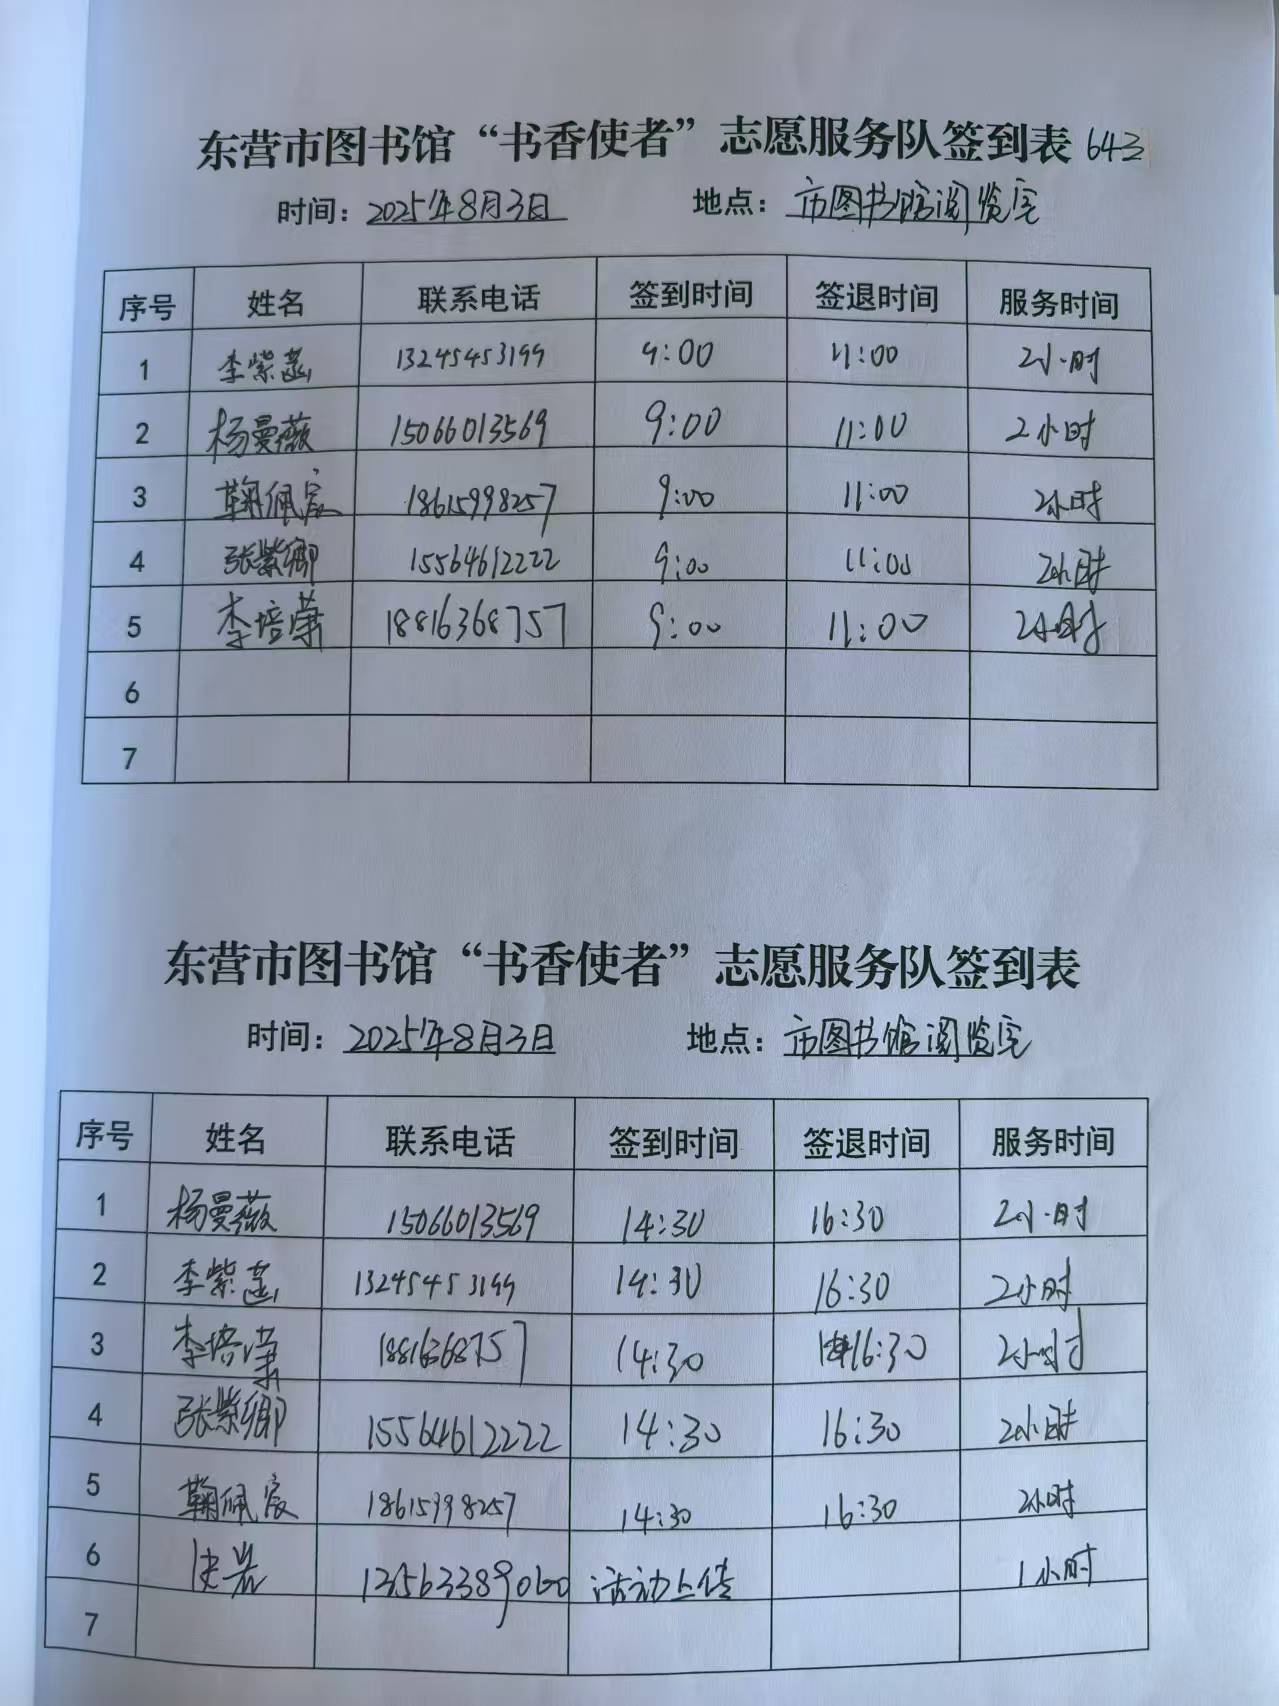 东营市图书馆“书香使者”志愿服务队签到表 643
时间：2025年8月3日 地点：市图书馆阅览室
序号 姓名 联系电话 签到时间 签退时间 服务时间
1 李紫菡 13245453199 9:00 11:00 2小时
2 杨曼薇 15066013569 9:00 11:00 2小时
3 鞠佩宸 18615998257 9:00 11:00 2小时
4 张紫卿 15564612222 9:00 11:00 2小时
5 李培荣 18816368757 9:00 11:00 2小时
6
7
东营市图书馆“书香使者”志愿服务队签到表
时间：2025年8月3日 地点：市图书馆阅览室
序号 姓名 联系电话 签到时间 签退时间 服务时间
1 杨曼薇 15066013569 14:30 16:30 2小时
2 李紫菡 13245453199 14:30 16:30 2小时
3 李培荣 18816368757 14:30 16:30 2小时
4 张紫卿 15564612222 14:30 16:30 2小时
5 鞠佩宸 18615998257 14:30 16:30 2小时
6 活动上传 1小时
7